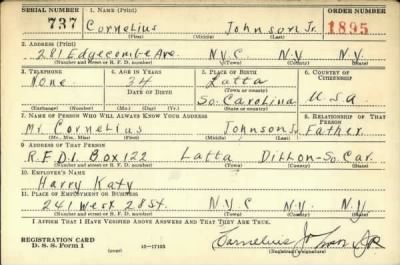 SERIAL NUMBER 1. NAME (Print) ORDER NUMBER
737 Cornelius Johnson Jr. 1895
(First) (Middle) (Last)
2. ADDRESS (Print)
281 Edgecombe Ave. N.Y.C N.Y N.Y.
(Number and street or R. F. D. number) (Town) (County) (State)
3. TELEPHONE 4. AGE IN YEARS 5. PLACE OF BIRTH 6. COUNTRY OF CITIZENSHIP
None. 34 Latta
DATE OF BIRTH (Town or county)
So. Carolina U.S.A
(Exchange) (Number) (Mo.) (Day) (Yr.) (State or country)
7. NAME OF PERSON WHO WILL ALWAYS KNOW YOUR ADDRESS 8. RELATIONSHIP OF THAT PERSON
Mr. Cornelius Johnson Jr. Father.
(Mr., Mrs., Miss) (First) (Middle) (Last)
9. ADDRESS OF THAT PERSON
R.F.D.1. Box 122 Latta Dillon-So. Car.
(Number and street or R. F. D. number) (Town) (County) (State)
10. EMPLOYER'S NAME
Harry Katy
11. PLACE OF EMPLOYMENT OR BUSINESS
241 West 28 St. N.Y.C N.Y. N.Y.
(Number and street or R. F. D. number) (Town) (County) (State)
I AFFIRM THAT I HAVE VERIFIED ABOVE ANSWERS AND THAT THEY ARE TRUE.
REGISTRATION CARD
D. S. S. Form 1 (over) 16-17105 Cornelius Johnson Jr